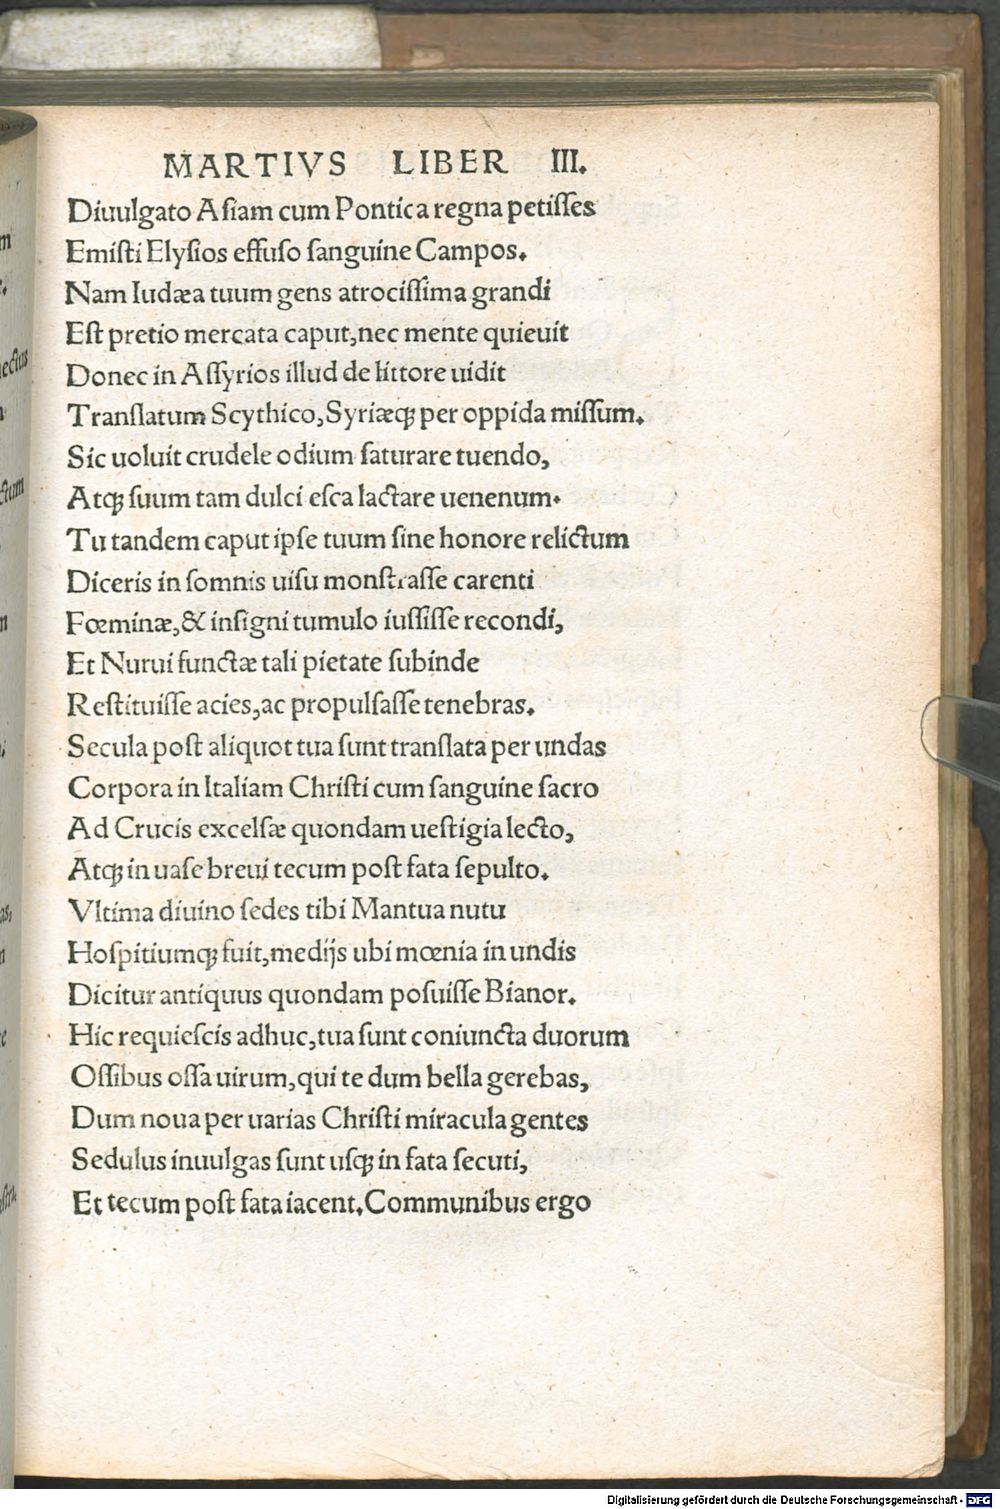 MARTIVS LIBER III.
Diuulgato Asiam cum Pontica regna petisses
Emisti Elysios effuso sanguine Campos.
Nam Iudæa tuum gens atrocissima grandi
Est pretio mercata caput, nec mente quieuit
Donec in Assyrios illud de littore uidit
Translatum Scythico, Syriæꝗ per oppida missum.
Sic uoluit crudele odium saturare tuendo,
Atꝗ suum tam dulci esca lactare uenenum.
Tu tandem caput ipse tuum sine honore relictum
Diceris in somnis uisu monstrasse carenti
Fœminæ, & insigni tumulo iussisse recondi,
Et Nurui functæ tali pietate subinde
Restituisse acies, ac propulsasse tenebras.
Secula post aliquot tua sunt translata per undas
Corpora in Italiam Christi cum sanguine sacro
Ad Crucis excelsæ quondam uestigia lecto,
Atꝗ in uase breui tecum post fata sepulto.
Vltima diuino sedes tibi Mantua nutu
Hospitiumꝗ fuit, medijs ubi mœnia in undis
Dicitur antiquus quondam posuisse Bianor.
Hic requiescis adhuc, tua sunt coniuncta duorum
Ossibus ossa uirum, qui te dum bella gerebas,
Dum noua per uarias Christi miracula gentes
Sedulus inuulgas sunt usꝗ in fata secuti,
Et tecum post fata iacent. Communibus ergo
Digitalisierung gefördert durch die Deutsche Forschungsgemeinschaft - DFG